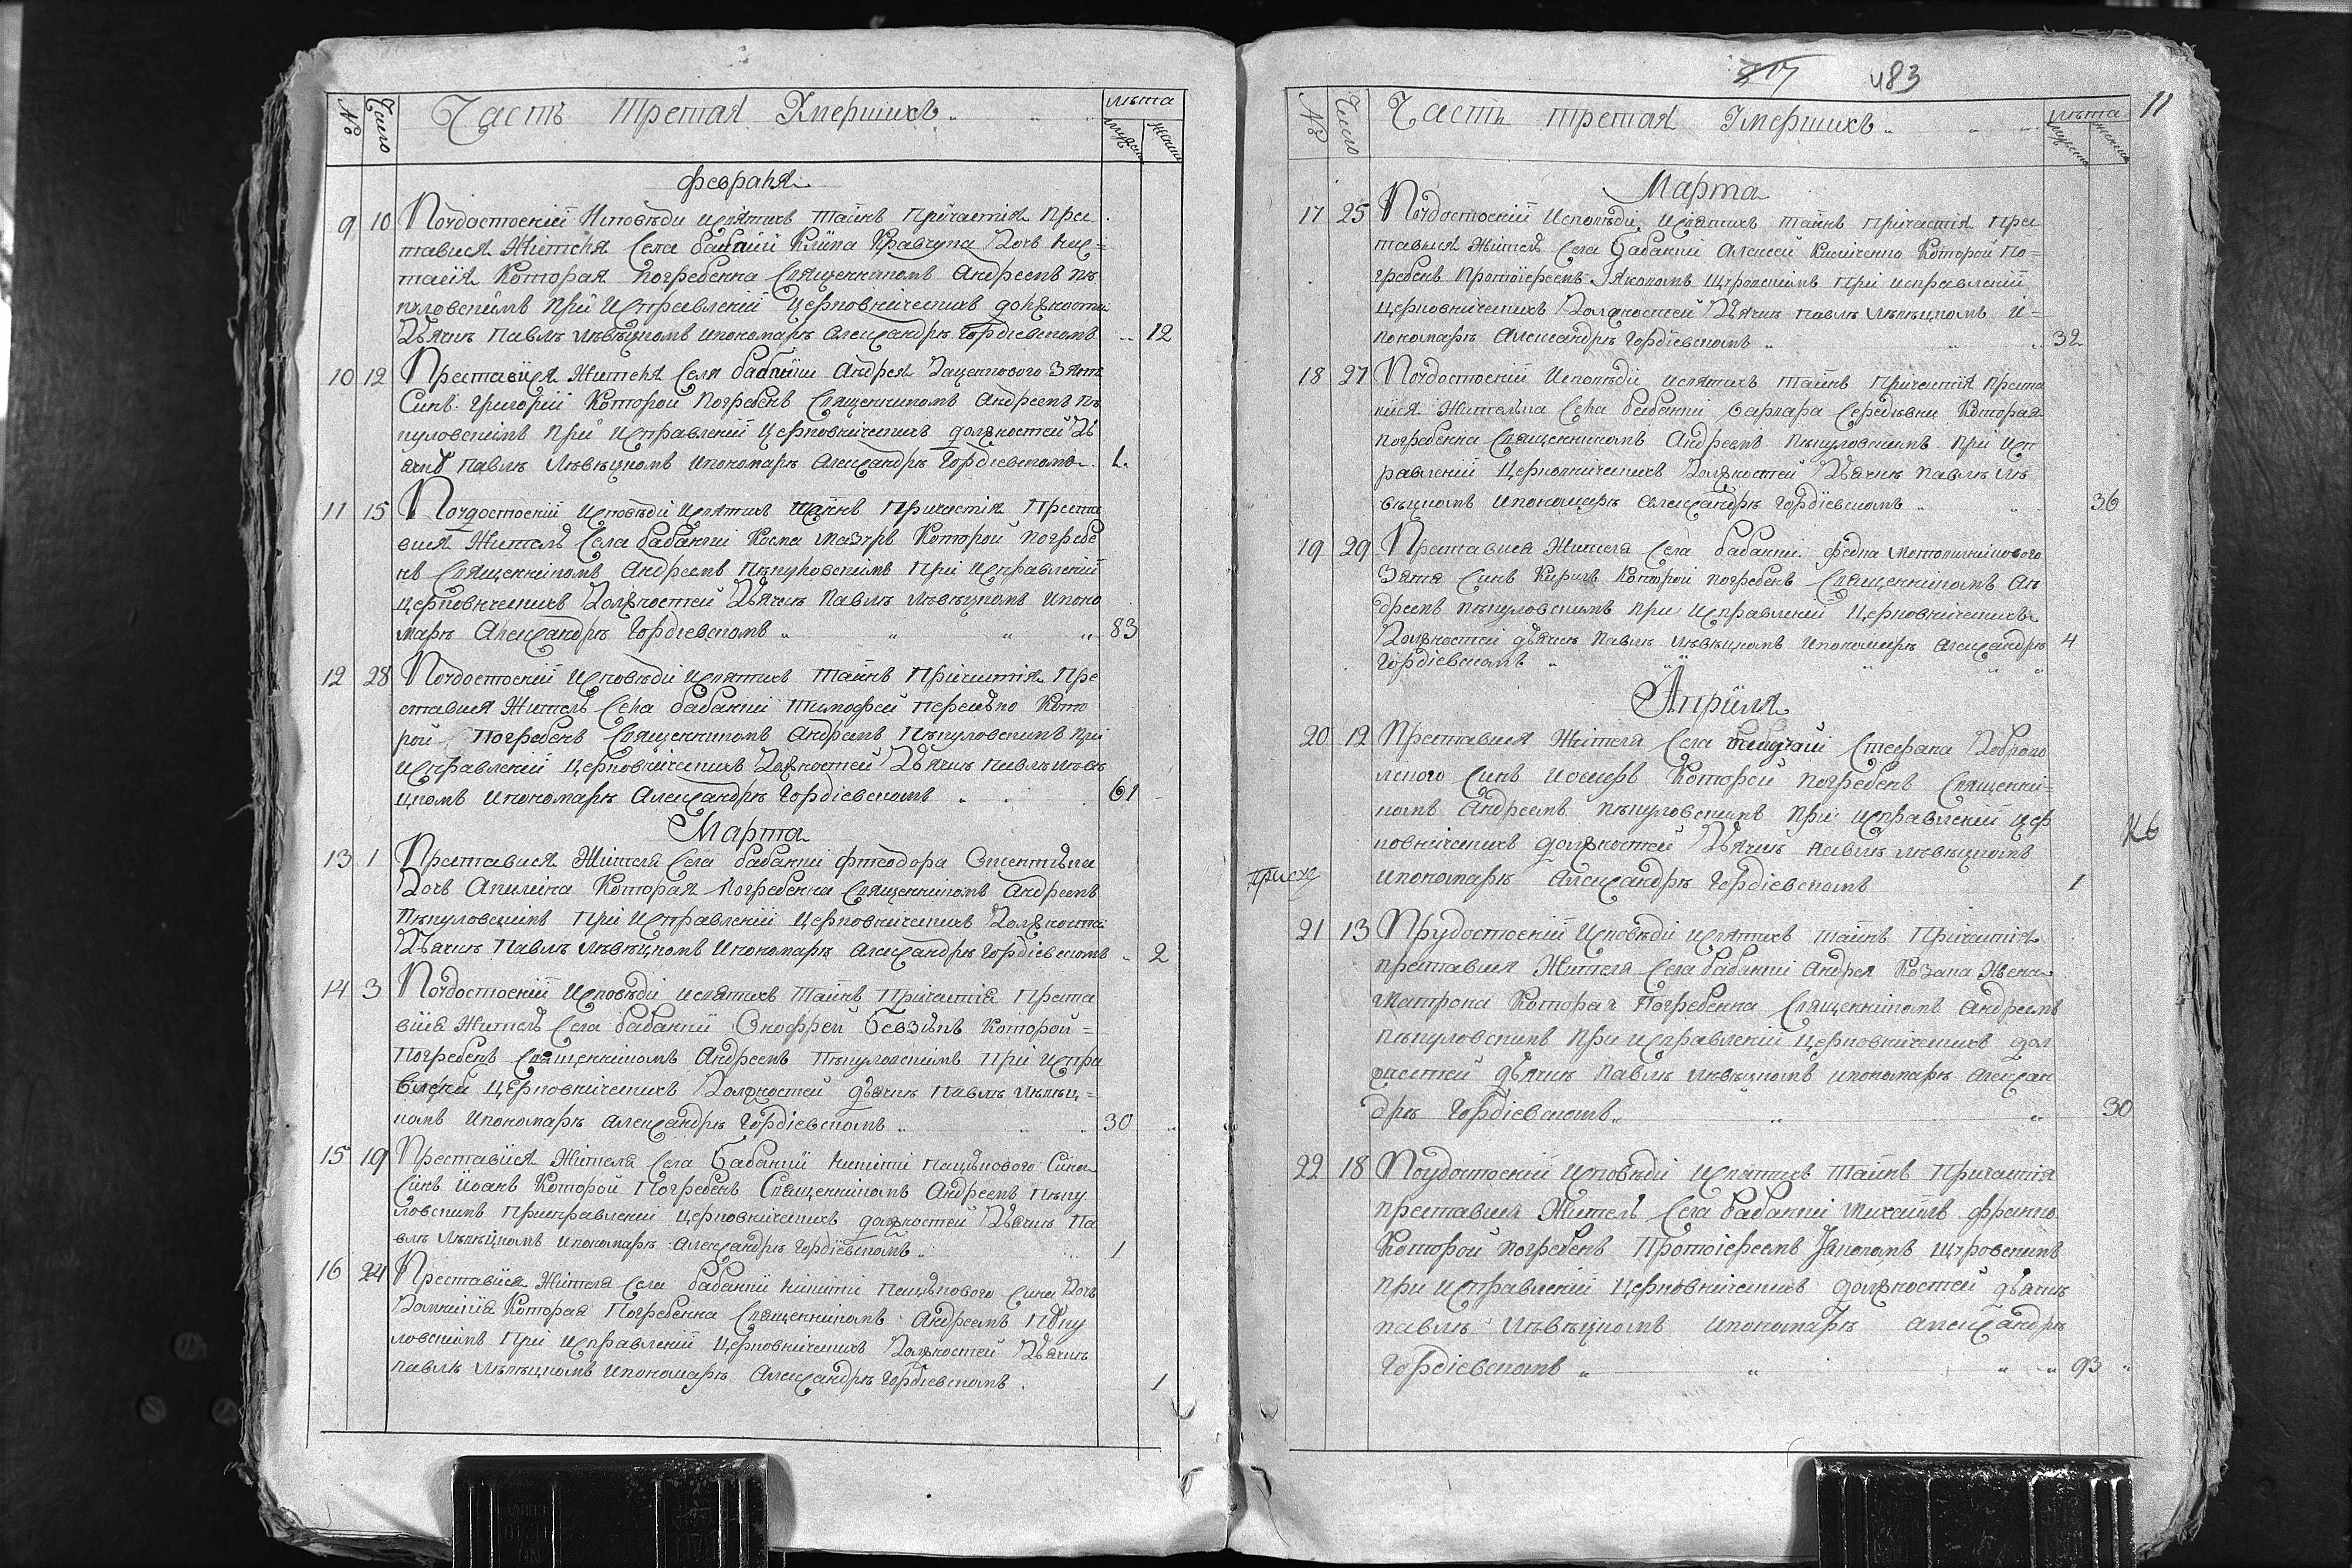 №
Число
Часть третая Умершихъ
лѣта
мужеск
женск
февраля
9 10 Поудостоении Исповѣди исвятихъ таинъ Причастия Пре
тавися Жителя Села бабаний Клима Кравчука Дочъ
Которая погребенна Священникомъ Андреемъ Пѣ
куловскимъ При Исправлений Церковническихъ должности
Дячкѣ Павлѣ Лѣвѣцкомъ ипономарѣ Александрѣ Гордиевскомъ 12
10 12 Преставися Жителя Села бабаний Андрея Зятя
Синъ Григорий Которой Погребенъ Священникомъ Андреемъ Пѣ
куловскимъ При Исправлений Церковническихъ должностей Дя
чкѣ Павлѣ Лѣвѣцкомъ ипономарѣ Александрѣ Гордиевскомъ 1.
11 15 Поудостоений Исповѣди исвятихъ Таинъ Причастия Преста
вися Жителъ Села бабаний Косма Мазуръ Которой погребе
нъ Священникомъ Андреемъ Пѣкуловскимъ При Исправлений
Церковническихъ Должностей Дячкѣ Павлѣ Лѣвѣцкомъ ипоно
марѣ Александрѣ Гордиевскомъ 83
12 28 Поудостоений Исповѣди исвятихъ таинъ Причастия Пре
ставися Жителъ Села бабаний Тимофей Кото
рой Погребенъ Священникомъ Андреемъ Пѣкуловскимъ При
Исправлений Церковническихъ Должностей Дячкѣ Павлѣ Лѣвѣ
цкомъ ипономарѣ Александрѣ Гордиевскомъ 61
Марта
13 1 Преставися Жителя Села бабаний фтеодора
Дочъ Акилина Которая Погребенна Священникомъ Андреемъ
Пѣкуловскимъ При Исправлений Церковническихъ Должности
Дячкѣ Павлѣ Лѣвѣцкомъ ипономарѣ Александрѣ Гордиевскомъ 2
14 3 Поудостоений Исповѣди исвятихъ Таинъ Причастия Преста
вися Жителъ Села бабаний Онофрей Которой
Погребенъ Священникомъ Андреемъ Пѣкуловскимъ При Испра
влений Церковническихъ Должностей дячкѣ Павлѣ Лѣвѣц
комъ ипономарѣ Александрѣ Гордиевскомъ 30
15 19 Преставися Жителя Села Бабаний Никити Сина
Синъ Иоанъ Которой Погребенъ Священникомъ Андреемъ Пѣку
ловскимъ Приисправлений Церковническихъ должностей Дячкѣ Па
влѣ Лѣвѣцкомъ ипономарѣ Александрѣ Гордиевскомъ 1
16 24 Преставися Жителя Села бабаний Никити Сина Дочъ
Которая Погребенна Священникомъ Андреемъ Пѣку
ловскимъ При Исправлений Церковническихъ Должностей Дячкѣ
Павлѣ Лѣвѣцкомъ ипономарѣ Александрѣ Гордиевскомъ 1
483
11
№
Число
Часть третая Умершихъ
лѣта
мужеска
женска
Марта
17 25 Поудостоений Исповѣди Исвятихъ таинъ Причастия Пре
тавися Жителя Села Бабаний Алексей Которой По=
гребенъ Протоиереемъ Яковомъ Щуровскимъ При исправлений
Церковническихъ Должностей Дячкѣ Павлѣ Лѣвѣцкомъ и=
пономарѣ Александрѣ Гордиевскомъ 32
18 27 Поудостоений Исповѣди исвятихъ таинъ Причастия Преста
вися Жителка Села бабаний Варвара Которая
погребенна Священникомъ Андреемъ Пѣкуловскимъ При Исп
равлений Церковническихъ Должностей Дячкѣ Павлѣ Лѣ
вѣцкомъ ипономарѣ Александрѣ Гордиевскомъ 36
19 29 Преставися Жителя Села бабаний федка
Зятя Синъ Кирилъ Которой погребенъ Священникомъ Ан
дреемъ Пѣкуловскимъ При Исправлений Церковническихъ
Должностей дячкѣ Павлѣ Лѣвѣцкомъ ипономарѣ Александрѣ 4
Гордиевскомъ
Априля
20 12 Преставися Жителя Села бабаний Стефана Доброво
лского Синъ Иосифъ Которой погребенъ Священни=
комъ Андреемъ Пѣкуловскимъ При Исправлений Цер
ковническихъ должностей Дячкѣ Павлѣ Лѣвѣцкомъ
ипономарѣ Александрѣ Гордиевскомъ 1
21 13 Прудостоений Исповѣди исвятихъ таинъ Причастия
преставися Жителя Села бабаний Андрея Козака Жена
Матрона Которая Погребенна Священникомъ Андреемъ
Пѣкуловскимъ При исправлений Церковническихъ дол
жностей дячкѣ Павлѣ Лѣвѣцкомъ ипономарѣ Алексан
дрѣ Гордиевскомъ 30
22 18 Поудостоений Исповѣди Исвятихъ таинъ Причастия
преставися Жителъ Села бабаний Михаилъ
Которой погребенъ Протоиереемъ Яковомъ Щуровскимъ
при Исправлений Церковническихъ должностей дячкѣ
павлѣ Лѣвѣцкомъ ипономарѣ александрѣ
Гордиевскомъ 93